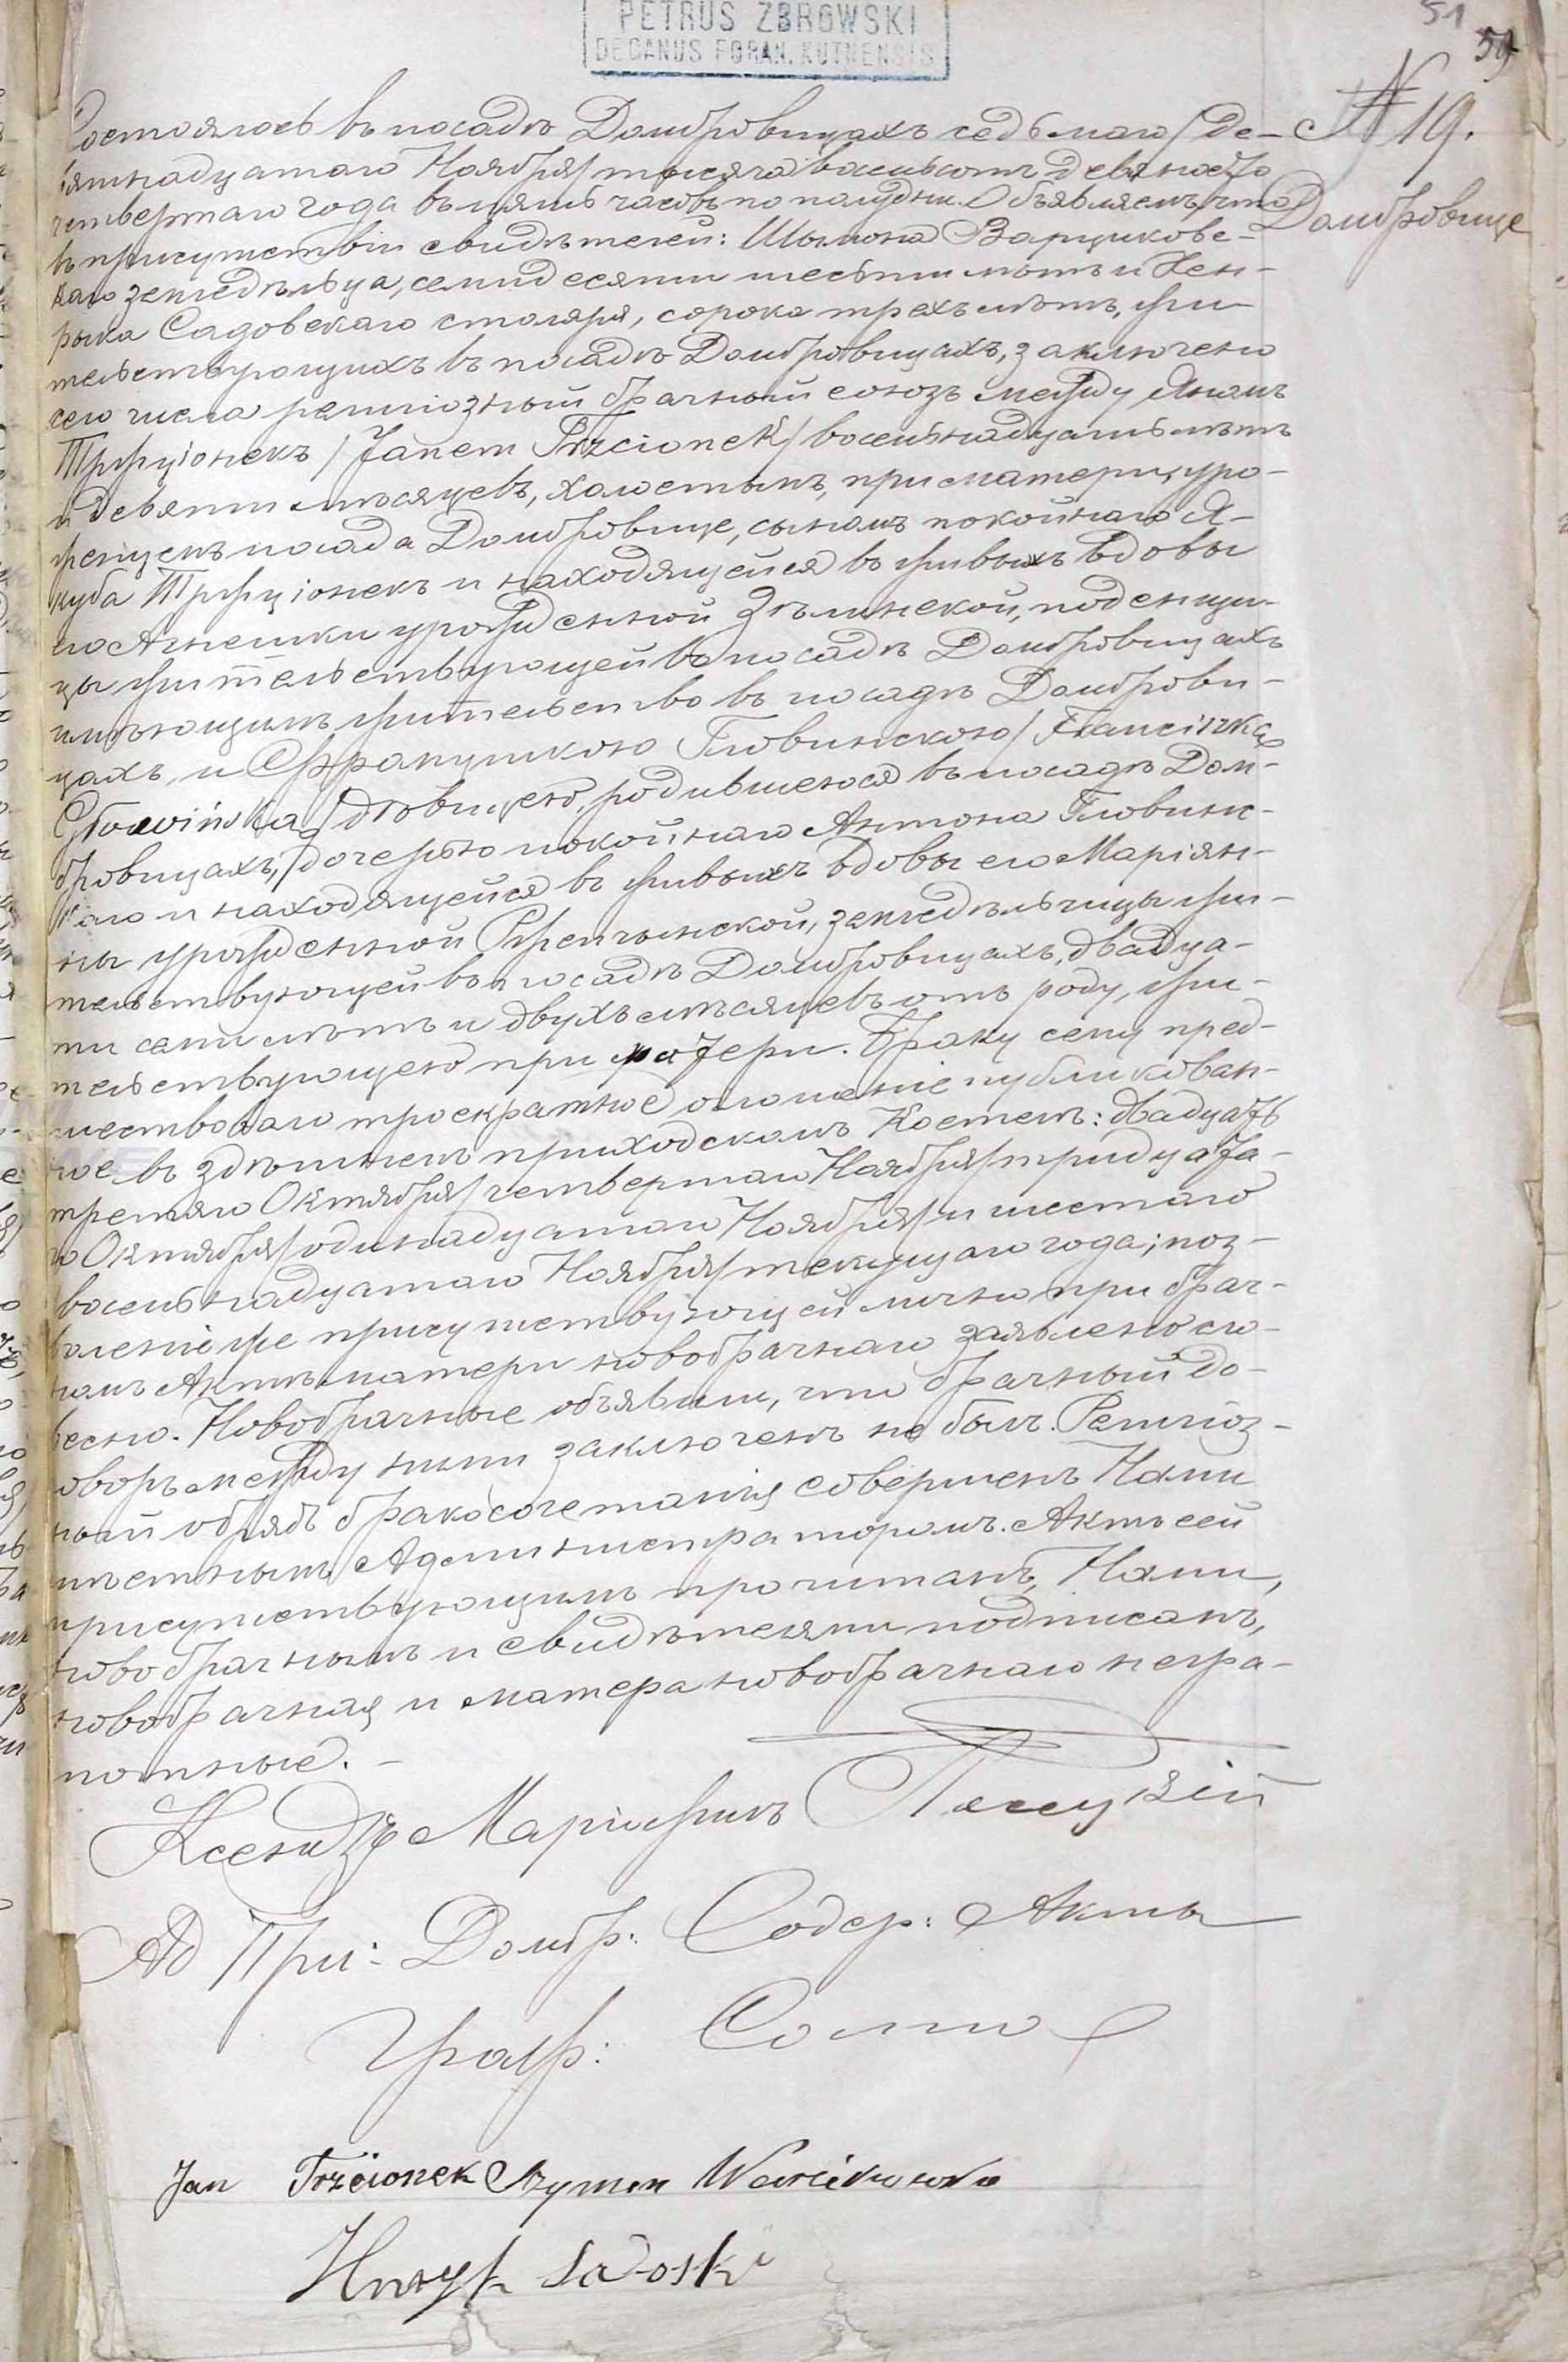 PETRUS ZBROWSKI
DECANUS FORAN. KUTNENSIS
51
59
№ 19.
Домбровице
Состоялось въ посадѣ Домбровицахъ седьмаго / де-
вятнадцатаго Ноября / тысяча восемьсотъ девяносто
четвертаго года въ пять часовъ по полудни. Объявляемъ, что
въ присутствіи свидѣтелей: Шымона Варциковс-
каго земледѣльца, семидесяти шести лѣтъ и Хен-
рыка Садовскаго столяря, сорока трехъ лѣтъ, жи-
тельствующихъ въ посадѣ Домбровицахъ, заключено
сего числа религіозный брачный союзъ между Яномъ
Тржціонекъ / Janem Trzcionek / восемнадцать лѣтъ
и девяти мѣсяцевъ, холостымъ, при матери, уро-
женцемъ посада Домбровице, сыномъ покойнаго Я-
куба Тржціонекъ и находящейся въ живыхъ вдовы
его Агнешки урожденной Зѣлинской, поденщи-
цы жительствующей въ посадѣ Домбровицахъ
имѣющимъ жительство въ посадѣ Домброви-
цахъ, и Францишкою Гловинскою / Franciszką
Głowińską / дѣвицею, родившеюся въ посадѣ Дом-
бровицахъ, дочерью покойнаго Антона Гловинс-
каго и находящейся въ живыхъ вдовы его Маріян-
ны урожденной земледѣльчицы жи-
тельствующей въ посадѣ Домбровицахъ, двадца-
ти семи лѣтъ и двухъ мѣсяцевъ отъ роду, жи-
тельствующею при матери. Браку сему пред-
шествовало троекратное оглошеніе публикован-
ное въ здѣшнемъ приходскомъ Костелѣ: двадцать
третяго Октября / четвертаго Ноября / тридцата-
го Октября / одинадцатаго Ноября / и шестаго
восемнадцатаго Ноября / текущаго года; поз-
воленіе же присутствующей лично при брач-
номъ Актѣ матери новобрачнаго заявлено сло-
весно. Новобрачные объявили, что брачный до-
говоръ между ними заключенъ не былъ. Религіоз-
ный обрядъ бракосочетанія совершенъ Нами
мѣстнымъ Администраторомъ. Актъ сей
присутствующимъ прочитанъ, Нами,
новобрачнымъ и свидѣтелями подписанъ,
новобрачная и матера новобрачнаго негра-
мотные. –
Ксендзъ
Ад При: Домбр: Содер: Акты
Граж: Сост
Jan Trzcionek Szymon
Henryk Sadoski